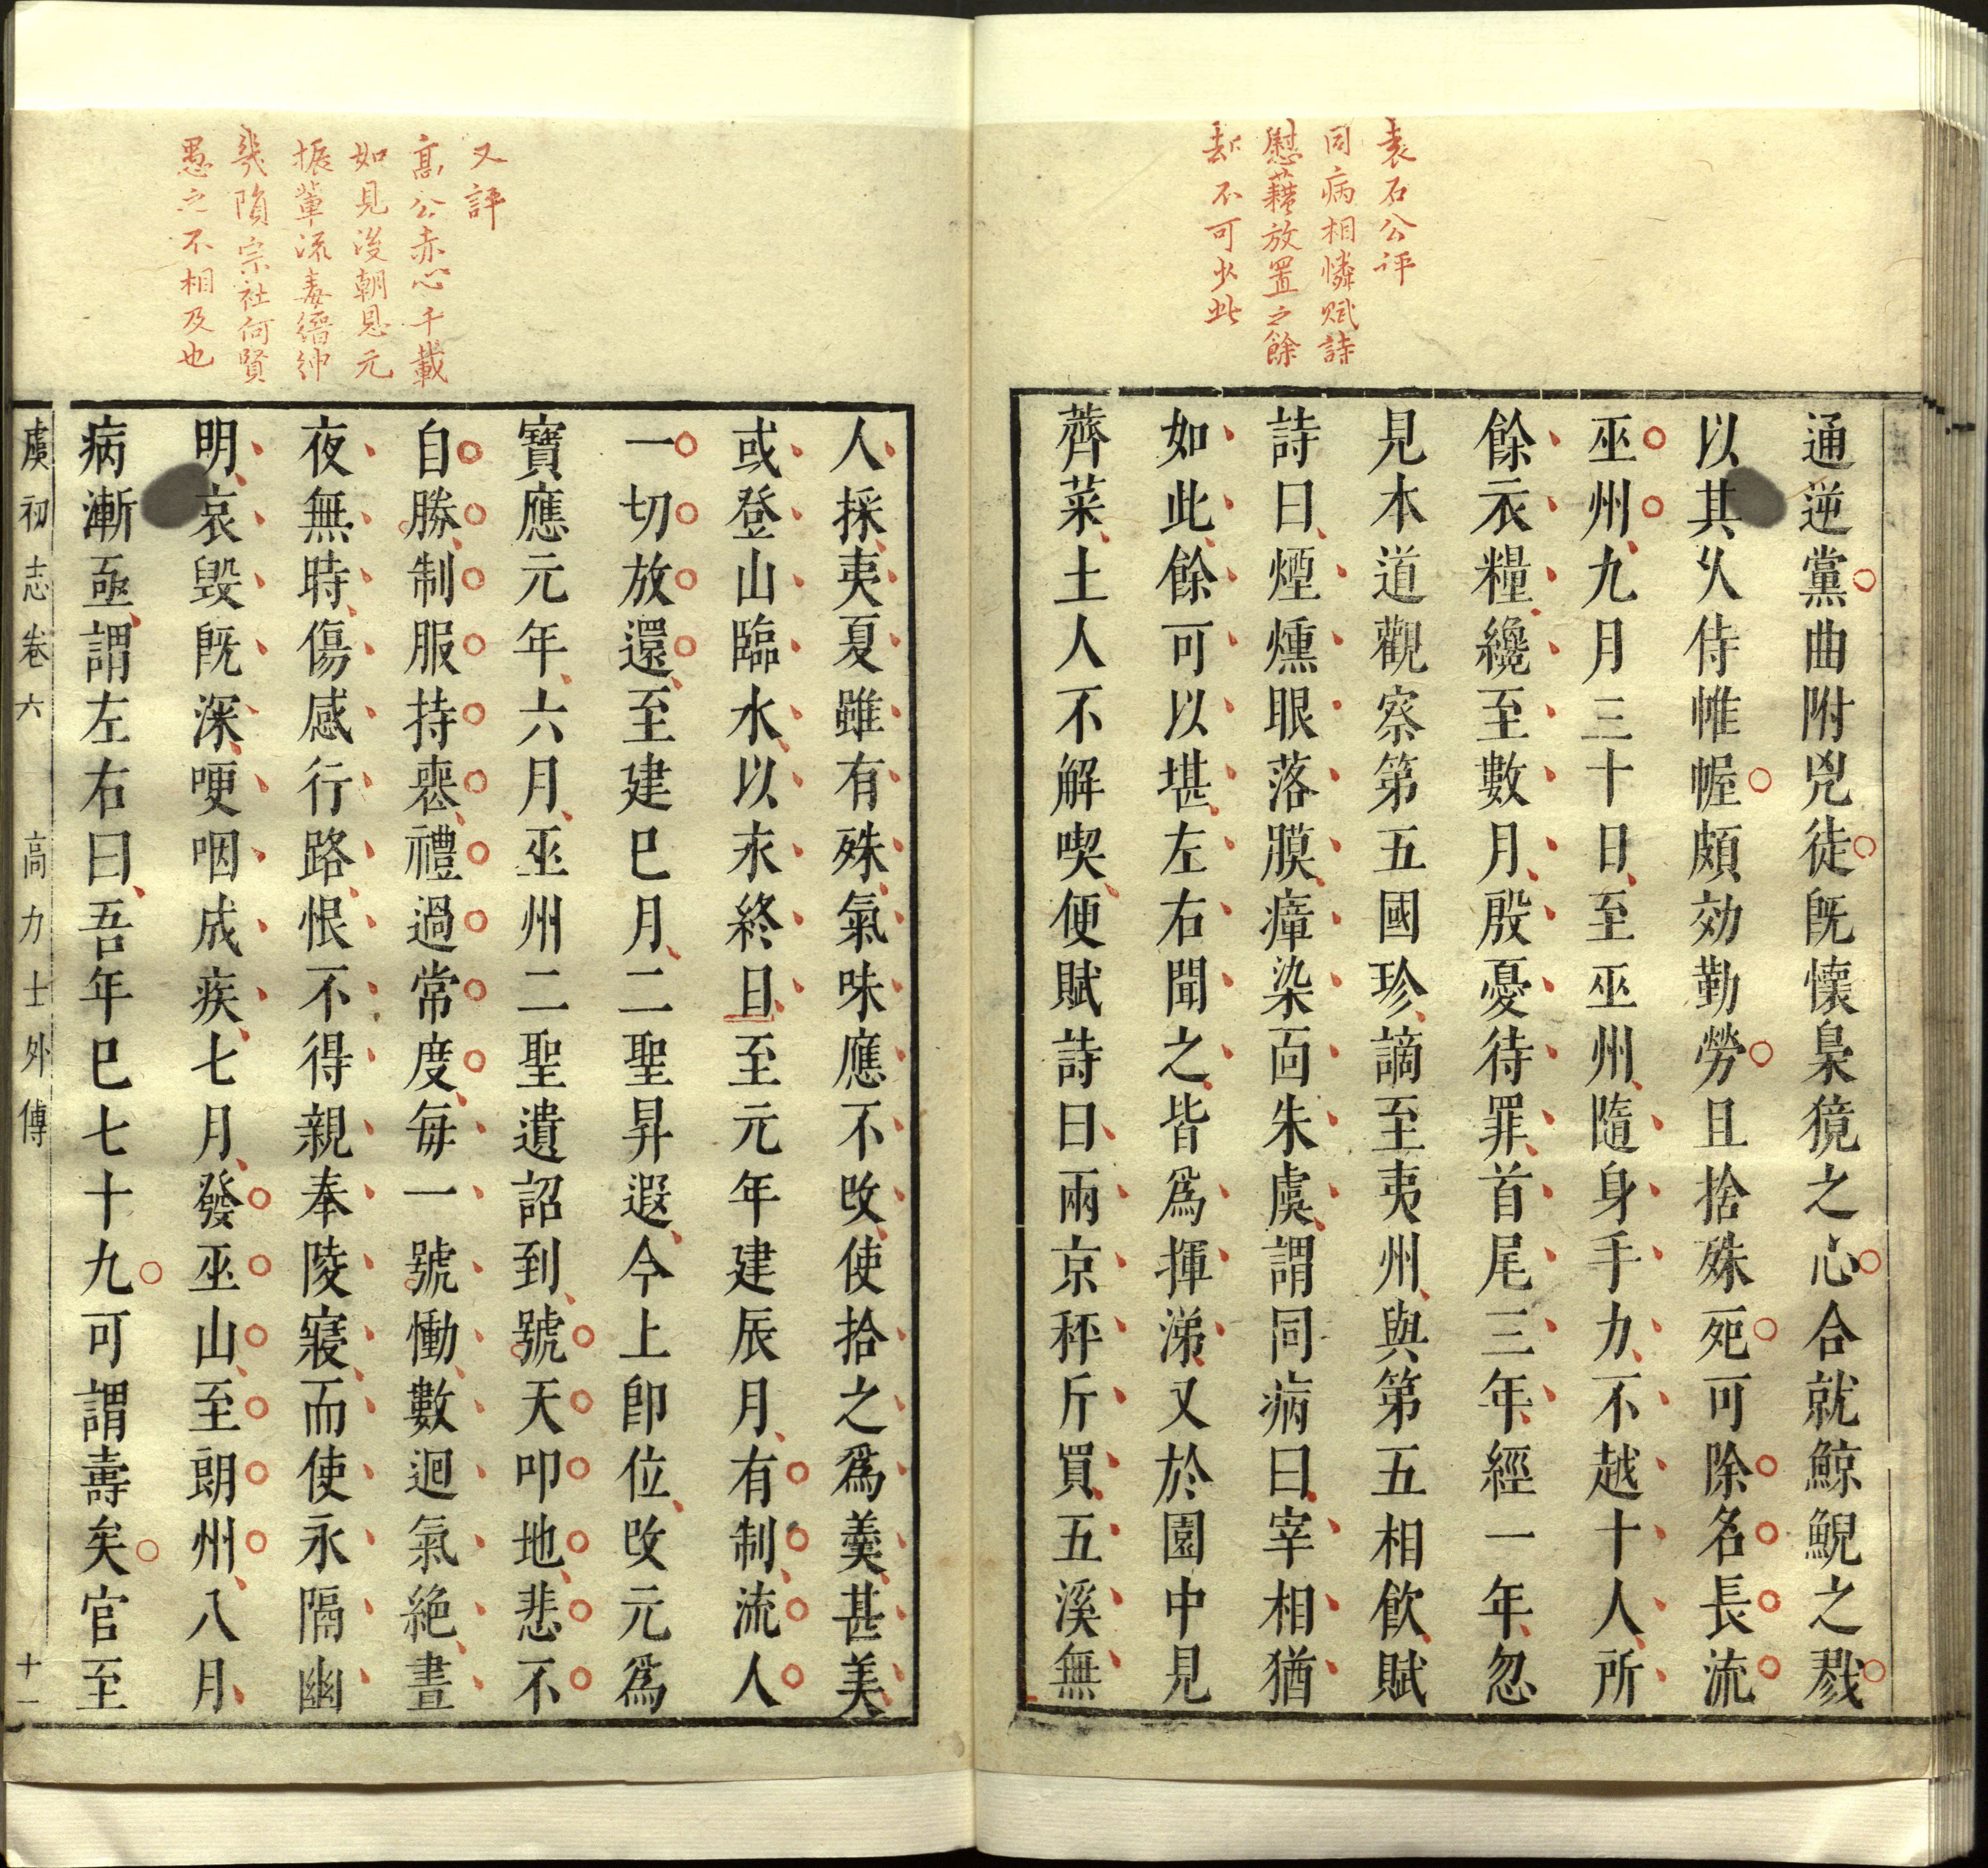 袁石公評
同病相憐賦詩
慰藉放置之餘
却不可少此
通逆黨曲附兇徒既懷梟獍之心合就鯨鯢之戮
以其久侍帷幄頗効勤勞且捨殊死可除名長流
巫州九月三十日至巫州隨身手力不越十人所
餘衣糧纔至數月殷憂待罪首尾三年經一年忽
見本道觀察第五國珍謫至夷州與第五相飲賦
詩曰煙燻眼落膜瘴染面朱虞謂同病曰宰相猶
如此餘可以堪左右聞之皆爲揮涕又於園中見
薺菜土人不解喫便賦詩曰兩京秤斤買五溪無
又評
高公赤心千載
如見後朝恩元
振輩流毒縉紳
幾隕宗社何賢
愚之不相及也
人採夷夏雖有殊氣味應不攺使拾之爲羹甚美
或登山臨水以永終日至元年建辰月有制流人
一切放還至建巳月二聖昇遐今上卽位攺元爲
寶應元年六月巫州二聖遺詔到號天叩地悲不
自勝制服持喪禮過常度每一號慟數迴氣絶晝
夜無時傷感行路恨不得親奉陵寢而使永隔幽
明哀毀旣深哽咽成疾七月發巫山至朗州八月
病漸亟謂左右曰吾年巳七十九可謂壽矣官至
虞初志卷六 高力士外傳 十一